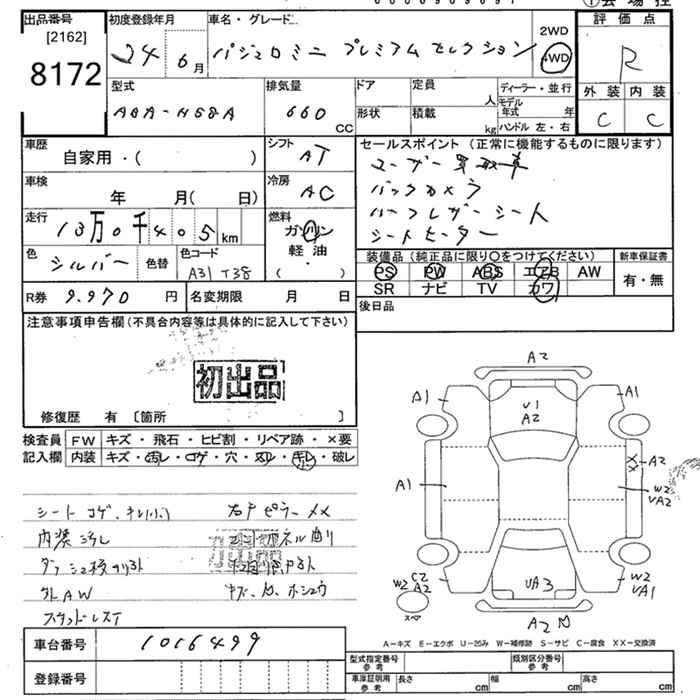 出品番号
[2162]
8172
初度登録年月
24 6 月
車名・グレード
パジェロミニ プレミアム セレクション
2WD
4WD
評価点
R
外装 内装
C C
型式
ABA-H58A
排気量
660 CC
ドア
形状
定員 人
積載 kg
ディーラー・並行
モデル年式 年
ハンドル 左・右
車歴
自家用・( )
シフト
AT
セールスポイント (正常に機能するものに限ります)
ユーザー買取車
バックカメラ
ハーフレザーシート
シートヒーター
車検
年 月( 日)
冷房
AC
走行
13万0千405 km
燃料
ガソリン
軽油
( ・ )
色
シルバー
色替
色コード
A31 T38
装備品 (純正品に限り○をつけてください)
PS PW ABS エアB AW
SR ナビ TV カワ
新車保証書
有・無
R券 9.970 円
名変期限 月 日
後日品
注意事項申告欄 (不具合内容等は具体的に記入して下さい)
初出品
修復歴 有 〔箇所 〕
検査員記入欄
FW キズ・飛石・ヒビ割・リペア跡・×要
内装 キズ・汚レ・コゲ・穴・スレ・キレ・破レ
シート コゲ、キレ
内装 汚れ
外AW
右Fピラー
A2
A1
U1
A2
A1
A1
XX
A2
W2
UA2
W2
C2
A2
スペア
UA3
W2
UA1
A2
A-キズ E-エクボ U-凹み W-補修跡 S-サビ C-腐食 XX-交換済
車台番号 1016499
登録番号
型式指定番号 参考
類別区分番号 参考
車庫証明用 参考
長さ cm 幅 cm 高さ cm